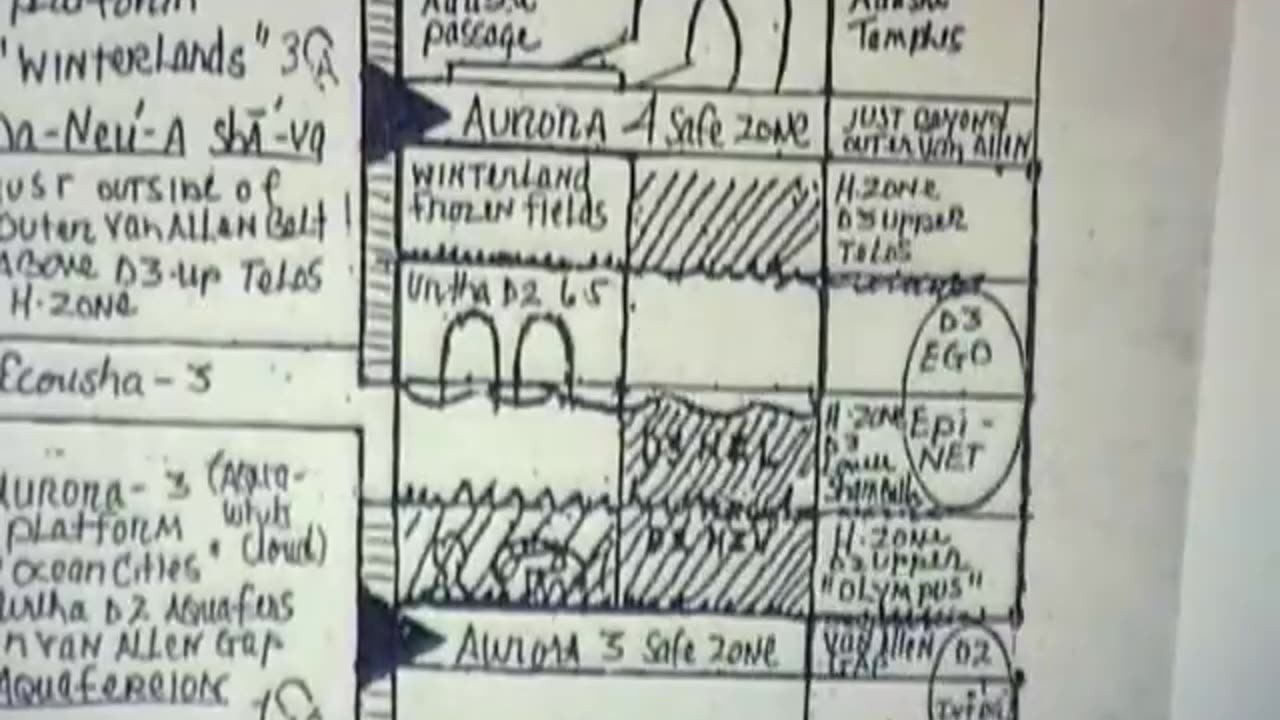 platform
"WINTERLANDS" 3
Da-Neú-A Shā́-va
JUST OUTSIDE OF
OUTER VAN ALLEN Belt!
ABOVE D3-UP TELOS
H-ZONE
Ecousha-3
AURORA-3 (Aqua-
platform
cloud)
"OCEAN CITIES"
Urtha D2 AQUAFERS
IN VAN ALLEN GAP
AQUAFEREION
passage
AURORA 4 Safe ZONE
WINTERLAND
FROZEN fields
Urtha D2 6.5
AURORA 3 Safe ZONE
Temples
JUST BEYOND
OUTER VAN ALLEN
H-ZONE
D3 UPPER
TELOS
D3
EGO
Epi-
NET
H-ZONE
D3
H-ZONE
D2 UPPER
"OLYMPUS"
VAN ALLEN
GAP
D2